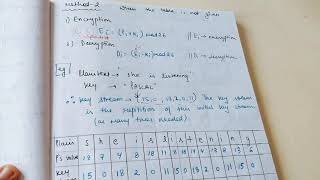 Method-2 When the table is not given
1) Encryption
Ei = (Pi + Ki) mod 26
2) Decryption
Di = (Ei - Ki) mod 26
Eg Plaintext → she is listening
Key →
∴ Key stream → 15, 0, 18, 2, 0, 11 The key stream
is the repetition of this initial key stream
(as many times needed)
Plain s h e i s l i s t e n i n g
P's value 18 7 4 8 18 11 8 18 19 4 13 8 13 6
Key 15 0 18 2 0 11 15 0 18 2 0 11 15 0